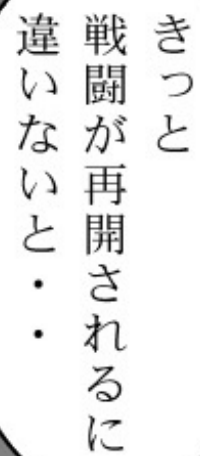 きっと
戦闘が再開されるに
違いないと・・